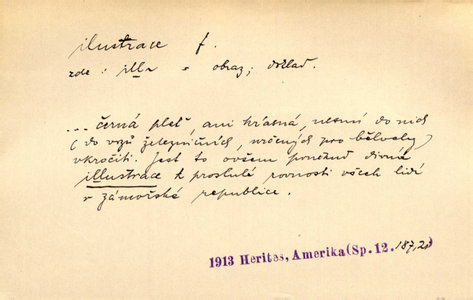 ilustrace f.
zde: illa = obraz; doklad.
... černá pleť, ani krásná, nesmí do nich
(do vozů železničních, určených pro bělochy)
vkročiti. Jest to ovšem poněkud divná
illustrace k proslulé rovnosti všech lidí
v zámořské republice.
1913 Herites, Amerika (Sp. 12. 187,2)